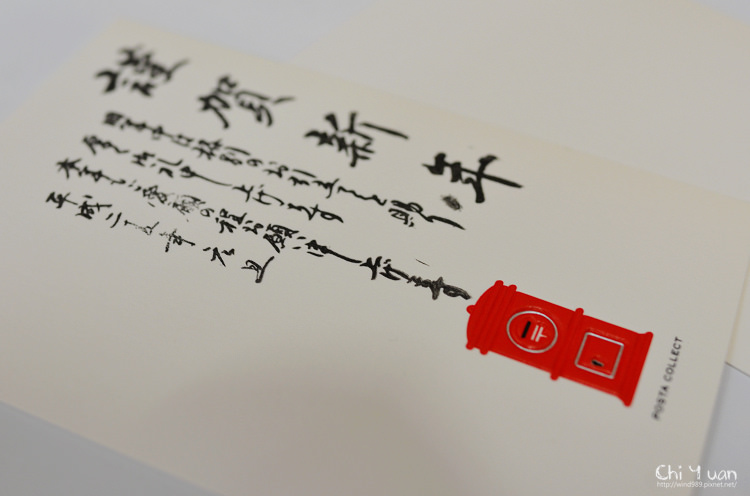 謹賀新年
旧年中は格別のお引立てを賜り
厚く御礼申し上げます
本年もご愛顧の程お願い申し上げます
平成二十五年 元旦
POSTA COLLECT
Chi Yuan
http://wind989.pixnet.net/